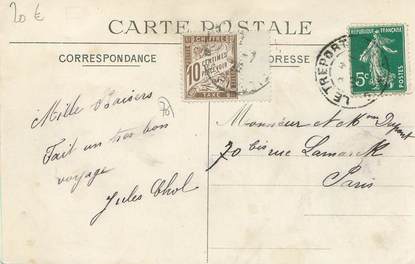 20 €
CARTE POSTALE
CORRESPONDANCE
ADRESSE
CHIFFRE
10 CENTIMES
À PERCEVOIR
TAXE
REPUBLIQUE FRANÇAISE
5c
LE TRÉPORT
Mille baisers
70
Fait un tres bon
voyage
Jules
Monsieur A Mme Dupont
70 bis rue Lamarck
Paris